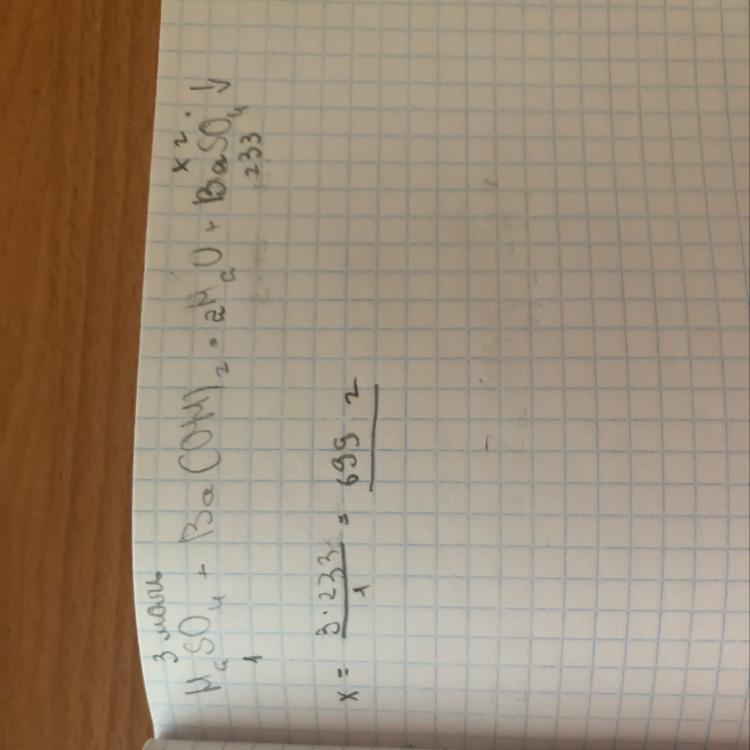 3 моль x г.
H₂SO₄ + Ba(OH)₂ = 2H₂O + BaSO₄↓
1 233
x = 3·233/1 = 699 г